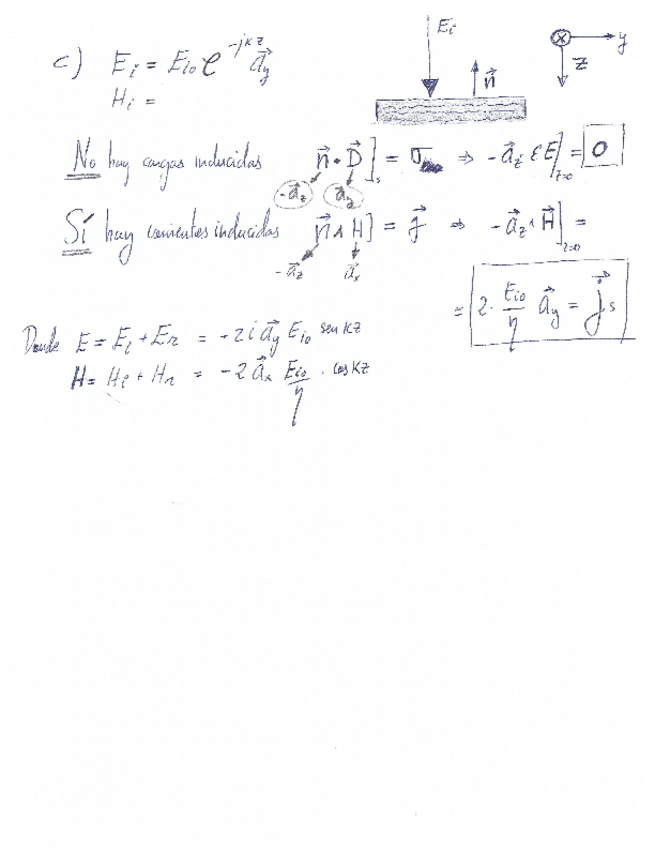 c) E⃗i = Eio e^(-jkz) a⃗y
Hi =
Ei
n⃗
y
z
No hay cargas inducidas n⃗ · D⃗]s = σ ⇒ -a⃗z ε E⃗|z=0 = 0
-a⃗z a⃗y
Sí hay corrientes inducidas n⃗ ∧ H] = j⃗ ⇒ -a⃗z ∧ H⃗|z=0 =
-a⃗z a⃗x
= 2 · Eio/η a⃗y = j⃗s
Donde E = Ei + Er = -2i a⃗y Eio sen kz
H = Hi + Hr = -2 a⃗x Eio/η · cos kz